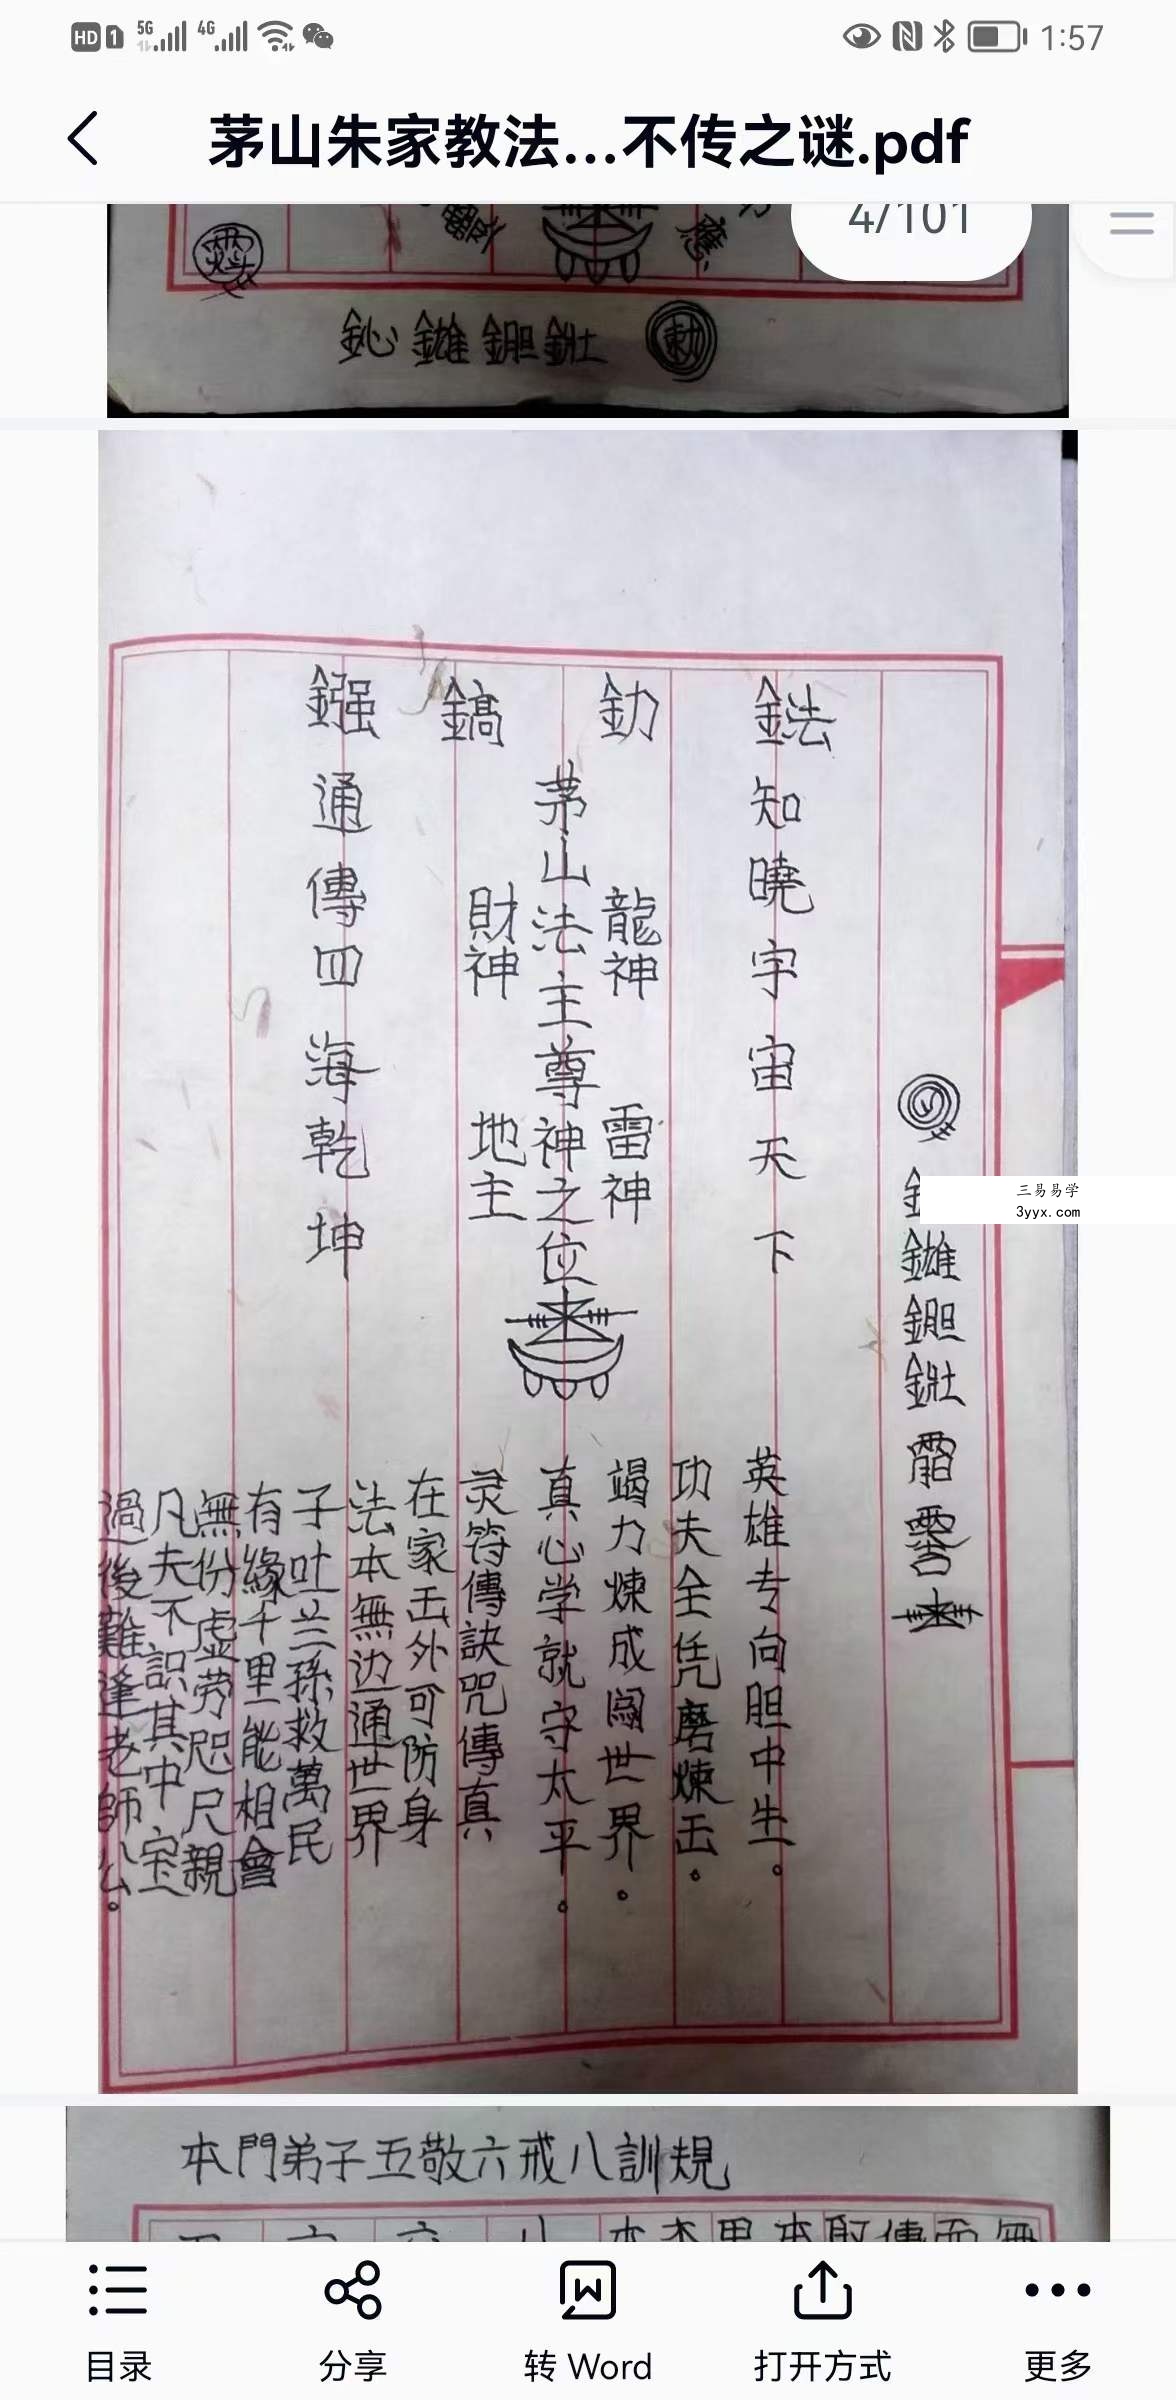 HD 1 5G 4G 1:57
茅山朱家教法...不传之谜.pdf
4/101
勅
三易易学
3yyx.com
知曉宇宙天下
龍神 雷神
茅山法主尊神之位
財神 地主
鎬
通傳四海乾坤
英雄专向胆中生。
功夫全凭磨煉
竭力煉成闖世界。
真心学就守太平。
灵符傳訣咒傳真
在家 外可防身
法本無边通世界
子吐兰孫救萬民
有緣千里能相會
無份虚劳咫尺親
凡夫不識其中宝
過後難逢老師公。
本門弟子五敬六戒八訓規
目录
分享
转 Word
打开方式
更多